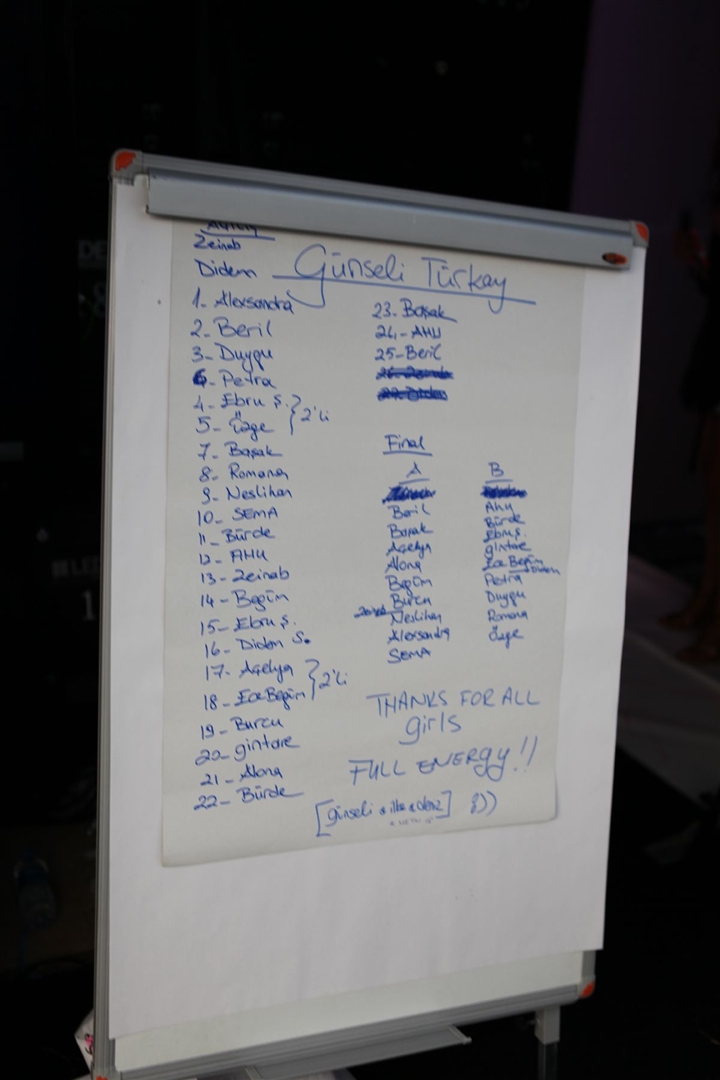 Zeinab
Didem
Günseli Türkay
1- Alexsandra
2- Beril
3- Duygu
6- Petra
4- Ebru Ş.
5- Özge
} 2'li
7- Başak
8- Romana
9- Neslihan
10- SEMA
11- Bürde
12- AHU
13- Zeinab
14- Begüm
15- Ebru Ş.
16- Didem S.
17- Açelya
18- Ece Begüm
} 2'li
19- Burcu
20- gintare
21- Alona
22- Bürde
23- Başak
24- AHU
25- Beril
Final
A
Beril
Başak
Açelya
Alona
Begüm
Burcu
Zeinab
Neslihan
Alexsandra
SEMA
B
AHU
Bürde
Ebru Ş.
gintare
Ece Begüm
Didem
Petra
Duygu
Romana
Özge
THANKS FOR ALL
girls
FULL ENERGY!!
[günseli &